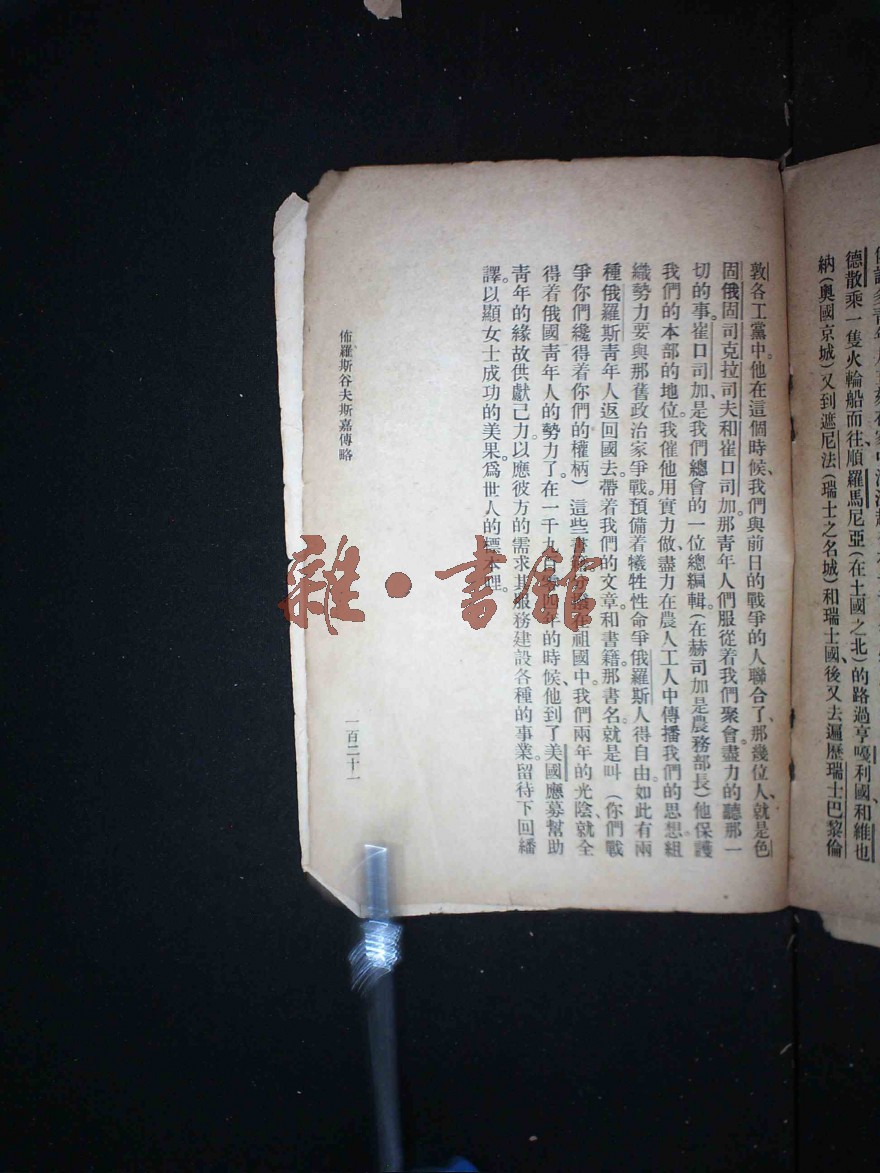 德散乘一隻火輪船而往、順羅馬尼亞(在土國之北)的路過亨嘎利國、和維也
納(奧國京城)又到遮尼法(瑞士之名城)和瑞士國、後又去遍歷瑞士巴黎倫
敦各工黨中。他在這個時候、我們與前日的戰爭的人聯合了、那幾位人、就是色
固俄固司克拉司夫和崔口司加。那青年人們服從着我們聚會。盡力的聽那一
切的事。崔口司加、是我們總會的一位總編輯。(在赫司加是農務部長)他保護
我們的本部的地位。我催他用實力做、盡力在農人工人中傳播我們的思想組
織勢力要與那舊政治家爭戰。預備着犧牲性命爭俄羅斯人得自由。如此有兩
種俄羅斯青年人返回國去。帶着我們的文章。和書籍。那書名。就是叫(你們戰
爭你們纔得着你們的權柄)這些在祖國中。我們兩年的光陰、就全
得着俄國青年人的勢力了。在一千九百四年的時候、他到了美國應募幫助
青年的緣故供獻己力。以應彼方的需求其服務建設各種的事業。留待下回繙
譯。以顯女士成功的美果。爲世人的標本哩。
佈羅斯谷夫斯嘉傳略
一百二十一
雜·書館